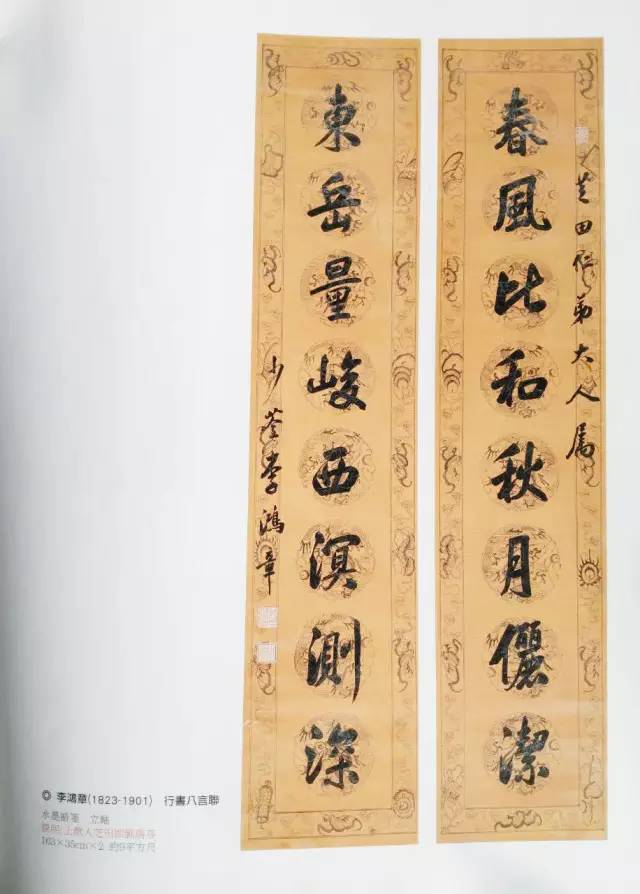 芝田仁弟大人属
春風比和秋月儷潔
東岳量峻西溟測深
少荃李鴻章
◎ 李鴻章(1823-1901) 行書八言聯
水墨紙箋 立軸
163×35cm×2 約9平方尺